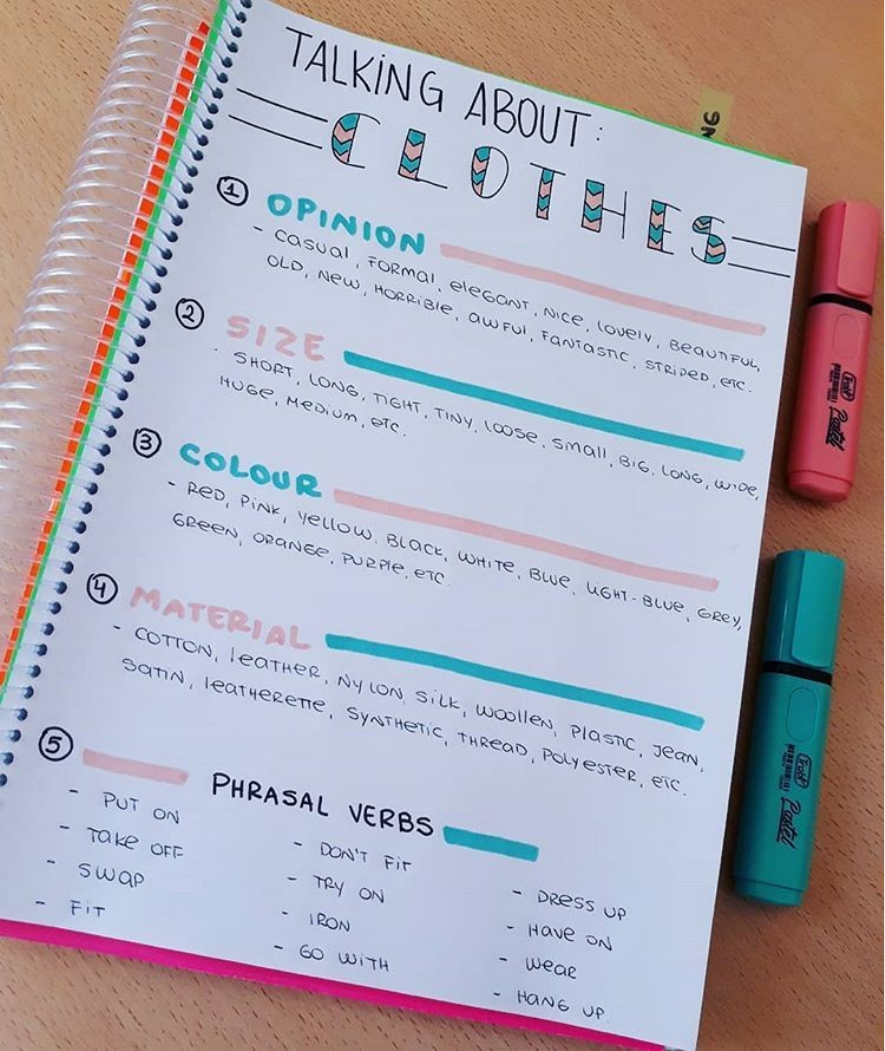 TALKING ABOUT:
CLOTHES
1 OPINION
- Casual, Formal, elegant, Nice, lovely, Beautiful,
Old, New, Horrible, awful, Fantastic, Striped, etc.
2 SIZE
- Short, Long, Tight, Tiny, Loose, Small, Big, Long, Wide,
Huge, Medium, etc.
3 COLOUR
- Red, Pink, Yellow, Black, White, Blue, Light-Blue, Grey,
Green, Orange, Purple, etc
4 MATERIAL
- Cotton, leather, Nylon, Silk, Woollen, Plastic, Jean,
Satin, leatherette, Synthetic, Thread, Polyester, etc.
5 PHRASAL VERBS
- PUT ON
- Take OFF
- SWAP
- FIT
- DON'T FIT
- TRY ON
- IRON
- GO WITH
- DRESS UP
- HAVE ON
- WEAR
- HANG UP.
Trabi
Pastel
Trabi
Pastel